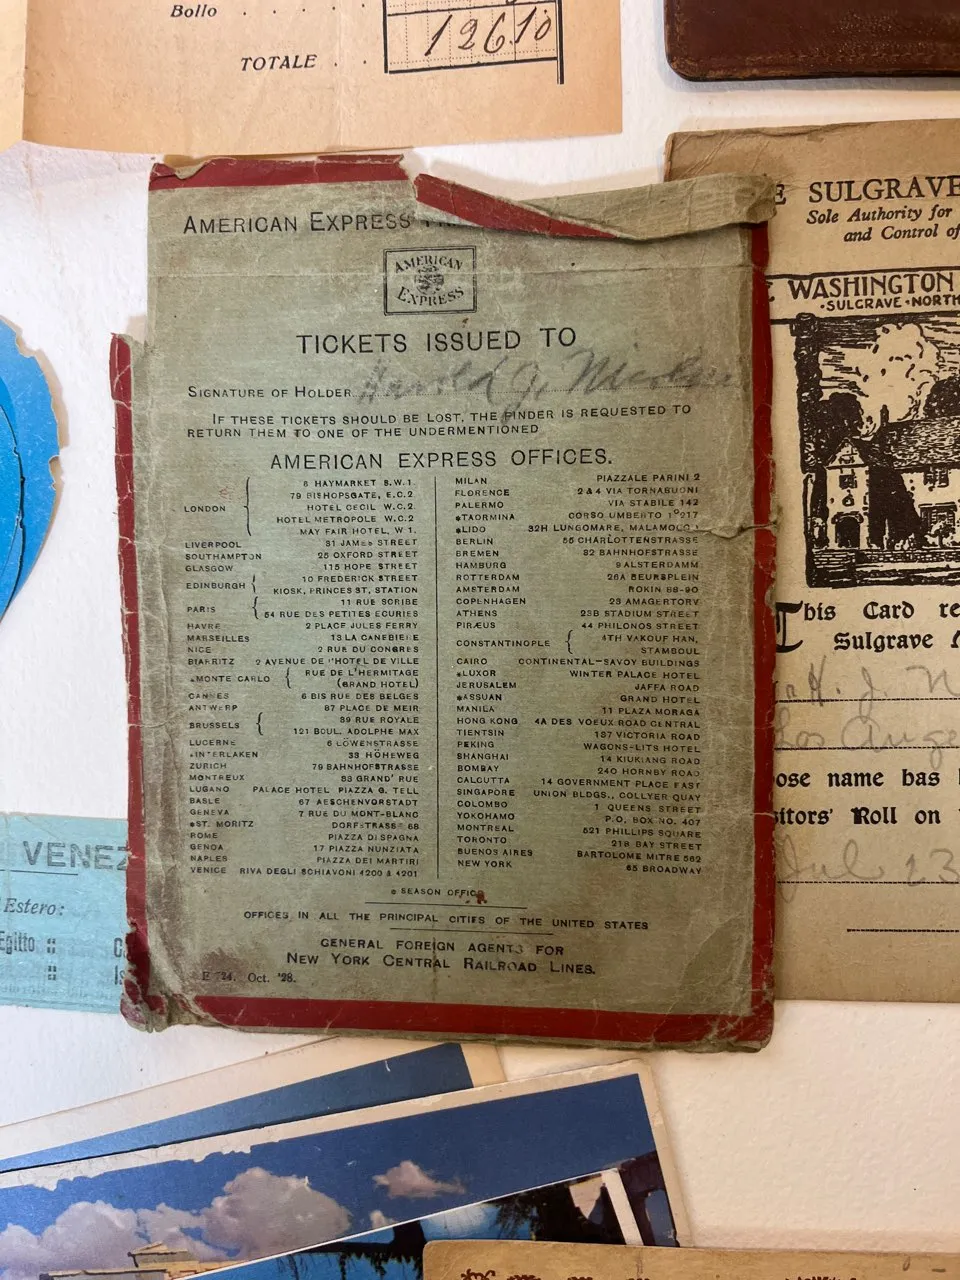 Bollo . . . .
TOTALE . .
126.10
AMERICAN EXPRESS
AMERICAN
EXPRESS
TICKETS ISSUED TO
SIGNATURE OF HOLDER Harold J.
IF THESE TICKETS SHOULD BE LOST, THE FINDER IS REQUESTED TO
RETURN THEM TO ONE OF THE UNDERMENTIONED
AMERICAN EXPRESS OFFICES.
LONDON
6 HAYMARKET S.W.1
79 BISHOPSGATE, E.C.2
HOTEL CECIL W.C.2
HOTEL METROPOLE W.C.2
MAY FAIR HOTEL, W.1.
LIVERPOOL 31 JAMES STREET
SOUTHAMPTON 25 OXFORD STREET
GLASGOW 115 HOPE STREET
EDINBURGH
10 FREDERICK STREET
KIOSK, PRINCES ST, STATION
PARIS
11 RUE SCRIBE
54 RUE DES PETITES ECURIES
HAVRE 2 PLACE JULES FERRY
MARSEILLES 13 LA CANEBIERE
NICE 2 RUE DU CONGRES
BIARRITZ 2 AVENUE DE L'HOTEL DE VILLE
*MONTE CARLO
RUE DE L'HERMITAGE
(GRAND HOTEL)
CANNES 6 BIS RUE DES BELGES
ANTWERP 87 PLACE DE MEIR
BRUSSELS
89 RUE ROYALE
121 BOUL. ADOLPHE MAX
LUCERNE 6 LÖWENSTRASSE
*INTERLAKEN 33 HÖHEWEG
ZURICH 79 BAHNHOFSTRASSE
MONTREUX 83 GRAND' RUE
LUGANO PALACE HOTEL PIAZZA G. TELL
BASLE 67 AESCHENVORSTADT
GENEVA 7 RUE DU MONT-BLANC
*ST. MORITZ DORFSTRASSE 68
ROME PIAZZA DI SPAGNA
GENOA 17 PIAZZA NUNZIATA
NAPLES PIAZZA DEI MARTIRI
VENICE RIVA DEGLI SCHIAVONI 4200 & 4201
MILAN PIAZZALE PARINI 2
FLORENCE 2 & 4 VIA TORNABUONI
PALERMO VIA STABILE 142
*TAORMINA CORSO UMBERTO 1° 217
*LIDO 32H LUNGOMARE, MALAMOCCO
BERLIN 55 CHARLOTTENSTRASSE
BREMEN 82 BAHNHOFSTRASSE
HAMBURG 9 ALSTERDAMM
ROTTERDAM 26A BEURSPLEIN
AMSTERDAM ROKIN 88-90
COPENHAGEN 23 AMAGERTORV
ATHENS 23B STADIUM STREET
PIRÆUS 44 PHILONOS STREET
CONSTANTINOPLE
4TH VAKOUF HAN,
STAMBOUL
CAIRO CONTINENTAL-SAVOY BUILDINGS
*LUXOR WINTER PALACE HOTEL
JERUSALEM JAFFA ROAD
*ASSUAN GRAND HOTEL
MANILA 11 PLAZA MORAGA
HONG KONG 4A DES VOEUX ROAD CENTRAL
TIENTSIN 137 VICTORIA ROAD
PEKING WAGONS-LITS HOTEL
SHANGHAI 14 KIUKIANG ROAD
BOMBAY 240 HORNBY ROAD
CALCUTTA 14 GOVERNMENT PLACE EAST
SINGAPORE UNION BLDGS., COLLYER QUAY
COLOMBO 1 QUEENS STREET
YOKOHAMO P.O. BOX NO. 407
MONTREAL 621 PHILLIPS SQUARE
TORONTO 21B BAY STREET
BUENOS AIRES BARTOLOME MITRE 562
NEW YORK 65 BROADWAY
* SEASON OFFICE
OFFICES IN ALL THE PRINCIPAL CITIES OF THE UNITED STATES
GENERAL FOREIGN AGENTS FOR
NEW YORK CENTRAL RAILROAD LINES.
Oct. '28.
SULGRAVE
Sole Authority for
and Control of
WASHINGTON
·SULGRAVE·NORTH
This Card re
Sulgrave
H. J. N
Los Ange
ose name has
sitors' Roll on
Jul 23
VENEZ
Estero:
Egitto